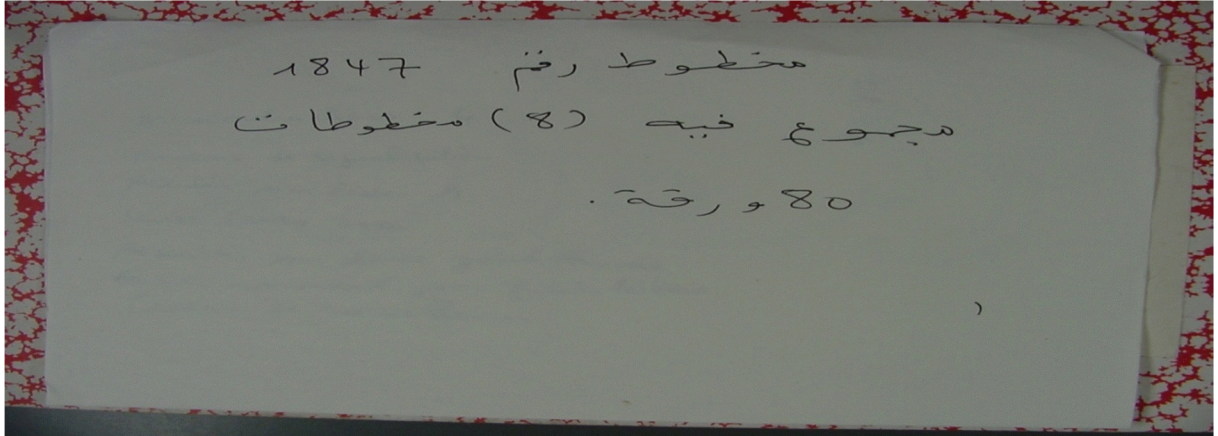 مخطوط رقم 1847
مجموع فيه (8) مخطوطات
80 ورقة .